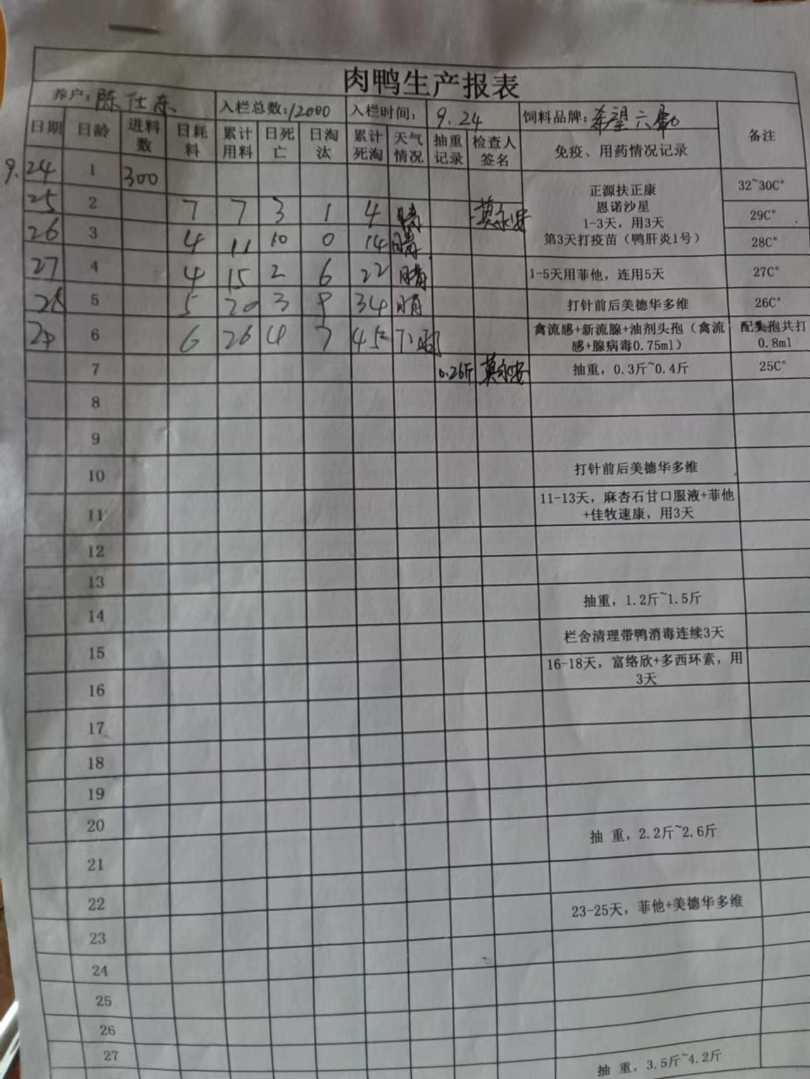 肉鸭生产报表
养户：陈仕东 入栏总数：12000 入栏时间： 9.24 饲料品牌：希望六和 备注
日期 日龄 进料数 日耗料 累计用料 日死亡 日淘汰 累计死淘 天气情况 抽重记录 检查人签名 免疫、用药情况记录
9.24 1 300 正源扶正康 32~30C°
25 2 7 7 3 1 4 晴 莫永安 恩诺沙星 29C°
1-3天，用3天
26 3 4 11 10 0 14 晴 第3天打疫苗（鸭肝炎1号） 28C°
27 4 4 15 2 6 22 晴 1-5天用菲他，连用5天 27C°
28 5 5 20 3 9 34 晴 打针前后美德华多维 26C°
29 6 6 26 4 7 45 小雨 禽流感+新流腺+油剂头孢（禽流感+腺病毒0.75ml） 配头孢共打0.8ml
7 0.26斤 莫永安 抽重，0.3斤~0.4斤 25C°
8
9
10 打针前后美德华多维
11 11-13天，麻杏石甘口服液+菲他+佳牧速康，用3天
12
13
14 抽重，1.2斤~1.5斤
15 栏舍清理带鸭消毒连续3天
16 16-18天，富络欣+多西环素，用3天
17
18
19
20 抽 重，2.2斤~2.6斤
21
22 23-25天，菲他+美德华多维
23
24
25
26
27 抽 重，3.5斤~4.2斤